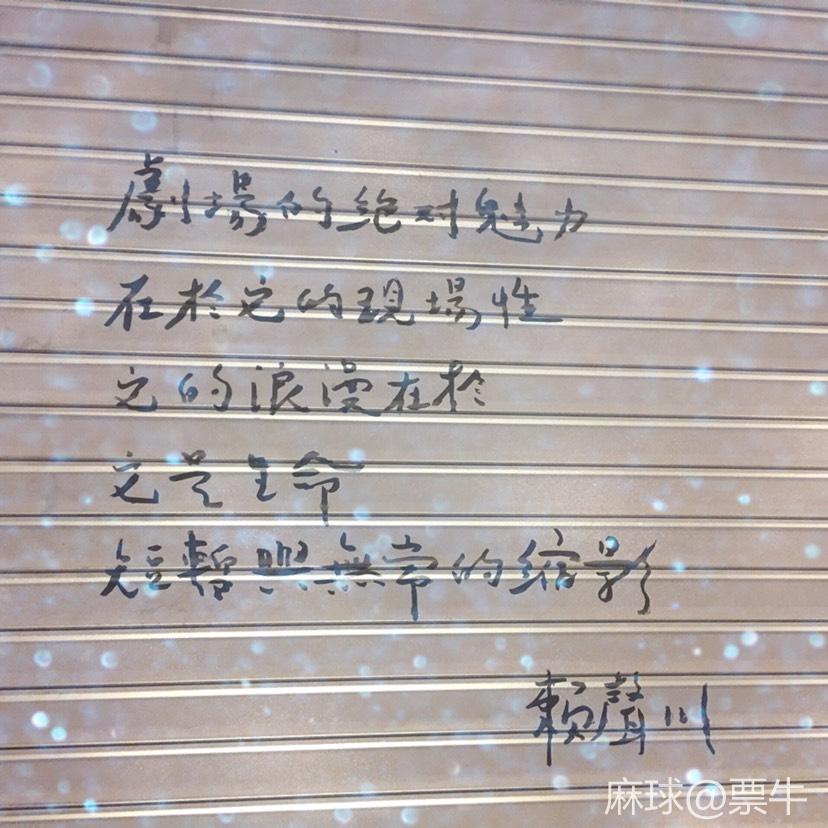 劇場的絕对魅力
在於它的現場性
它的浪漫在於
它是生命
短暫與無常的縮影
賴聲川
麻球@票牛